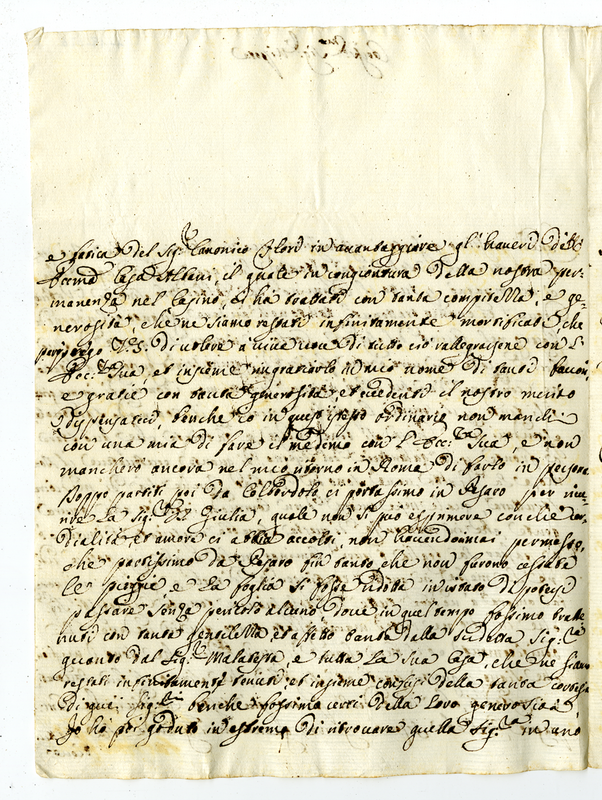 e fatica del Sig.r Canonico Flori in avantaggiare gl'haveri dell'
Ecc.ma Casa Albani, il quale in congiontura della nostra per:
manenza nel Casino, ci ha trattati con tanta compitezza, e ge:
nerosità, che ne siamo restati infinitamente mortificati, che
perciò prego V.S. di volere a viva voce di tutto ciò rallegrarsene con l'
Ecc.za Sua, et insieme ringratiarlo in mio nome di tanti favori,
e gratie con tanta generosità et eccedenti il nostro merito
dispensateci, benche io in questo istesso ordinario non manchi
con una mia di fare il medemo con l'Ecc.za Sua, e non
mancherò ancora nel mio ritorno in Roma di farlo in persona
Doppo partiti poi da Colbordolo ci portassimo in Pesaro per rive
rire la Sig.ra Giulia, quale non si può esprimere con che cor
dialità et amore ci abbia accolti, non havendomai permesso,
che partissimo da Pesaro fin tanto, che non furono cessate
le pioggie, e la foglia si fosse ridotta in istato di potersi
passare senza pericolo alcuno dove in quel tempo fossimo tratte
nuti con tanta gentilezza et affetto tanto dalla sudetta Sig.ra
quanto dal Sig.r Malatesta, e tutta la sua Casa, che ne siamo
restati infinitamente tenuti et insieme confusi della tanta cortesia
di quei Sig.ri benche fossimo certi della loro generosità
Io ho poi goduto in estremo di ritrovare quella Sig.ra in uno